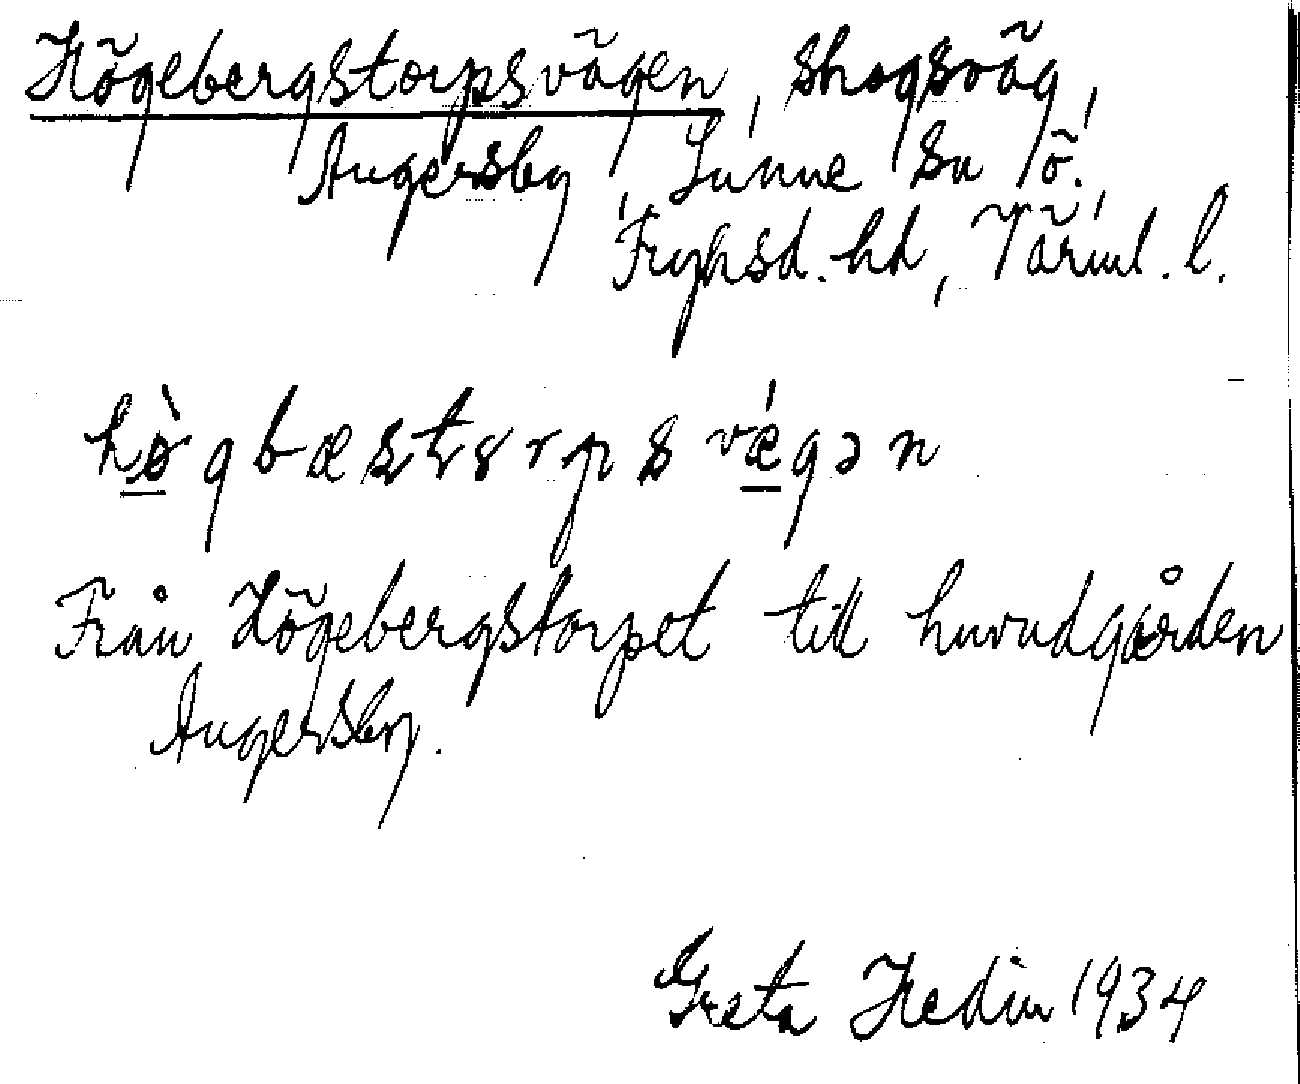 Högebergstorpsvägen, skogsväg,
Ängersby, Sunne sn Ö.
Fryksd. hd, Värml. l.
hø̀gbæstorpsvǽgən
Från Högebergstorpet till huvudgården
Ängersby.
Greta Hedin 1934